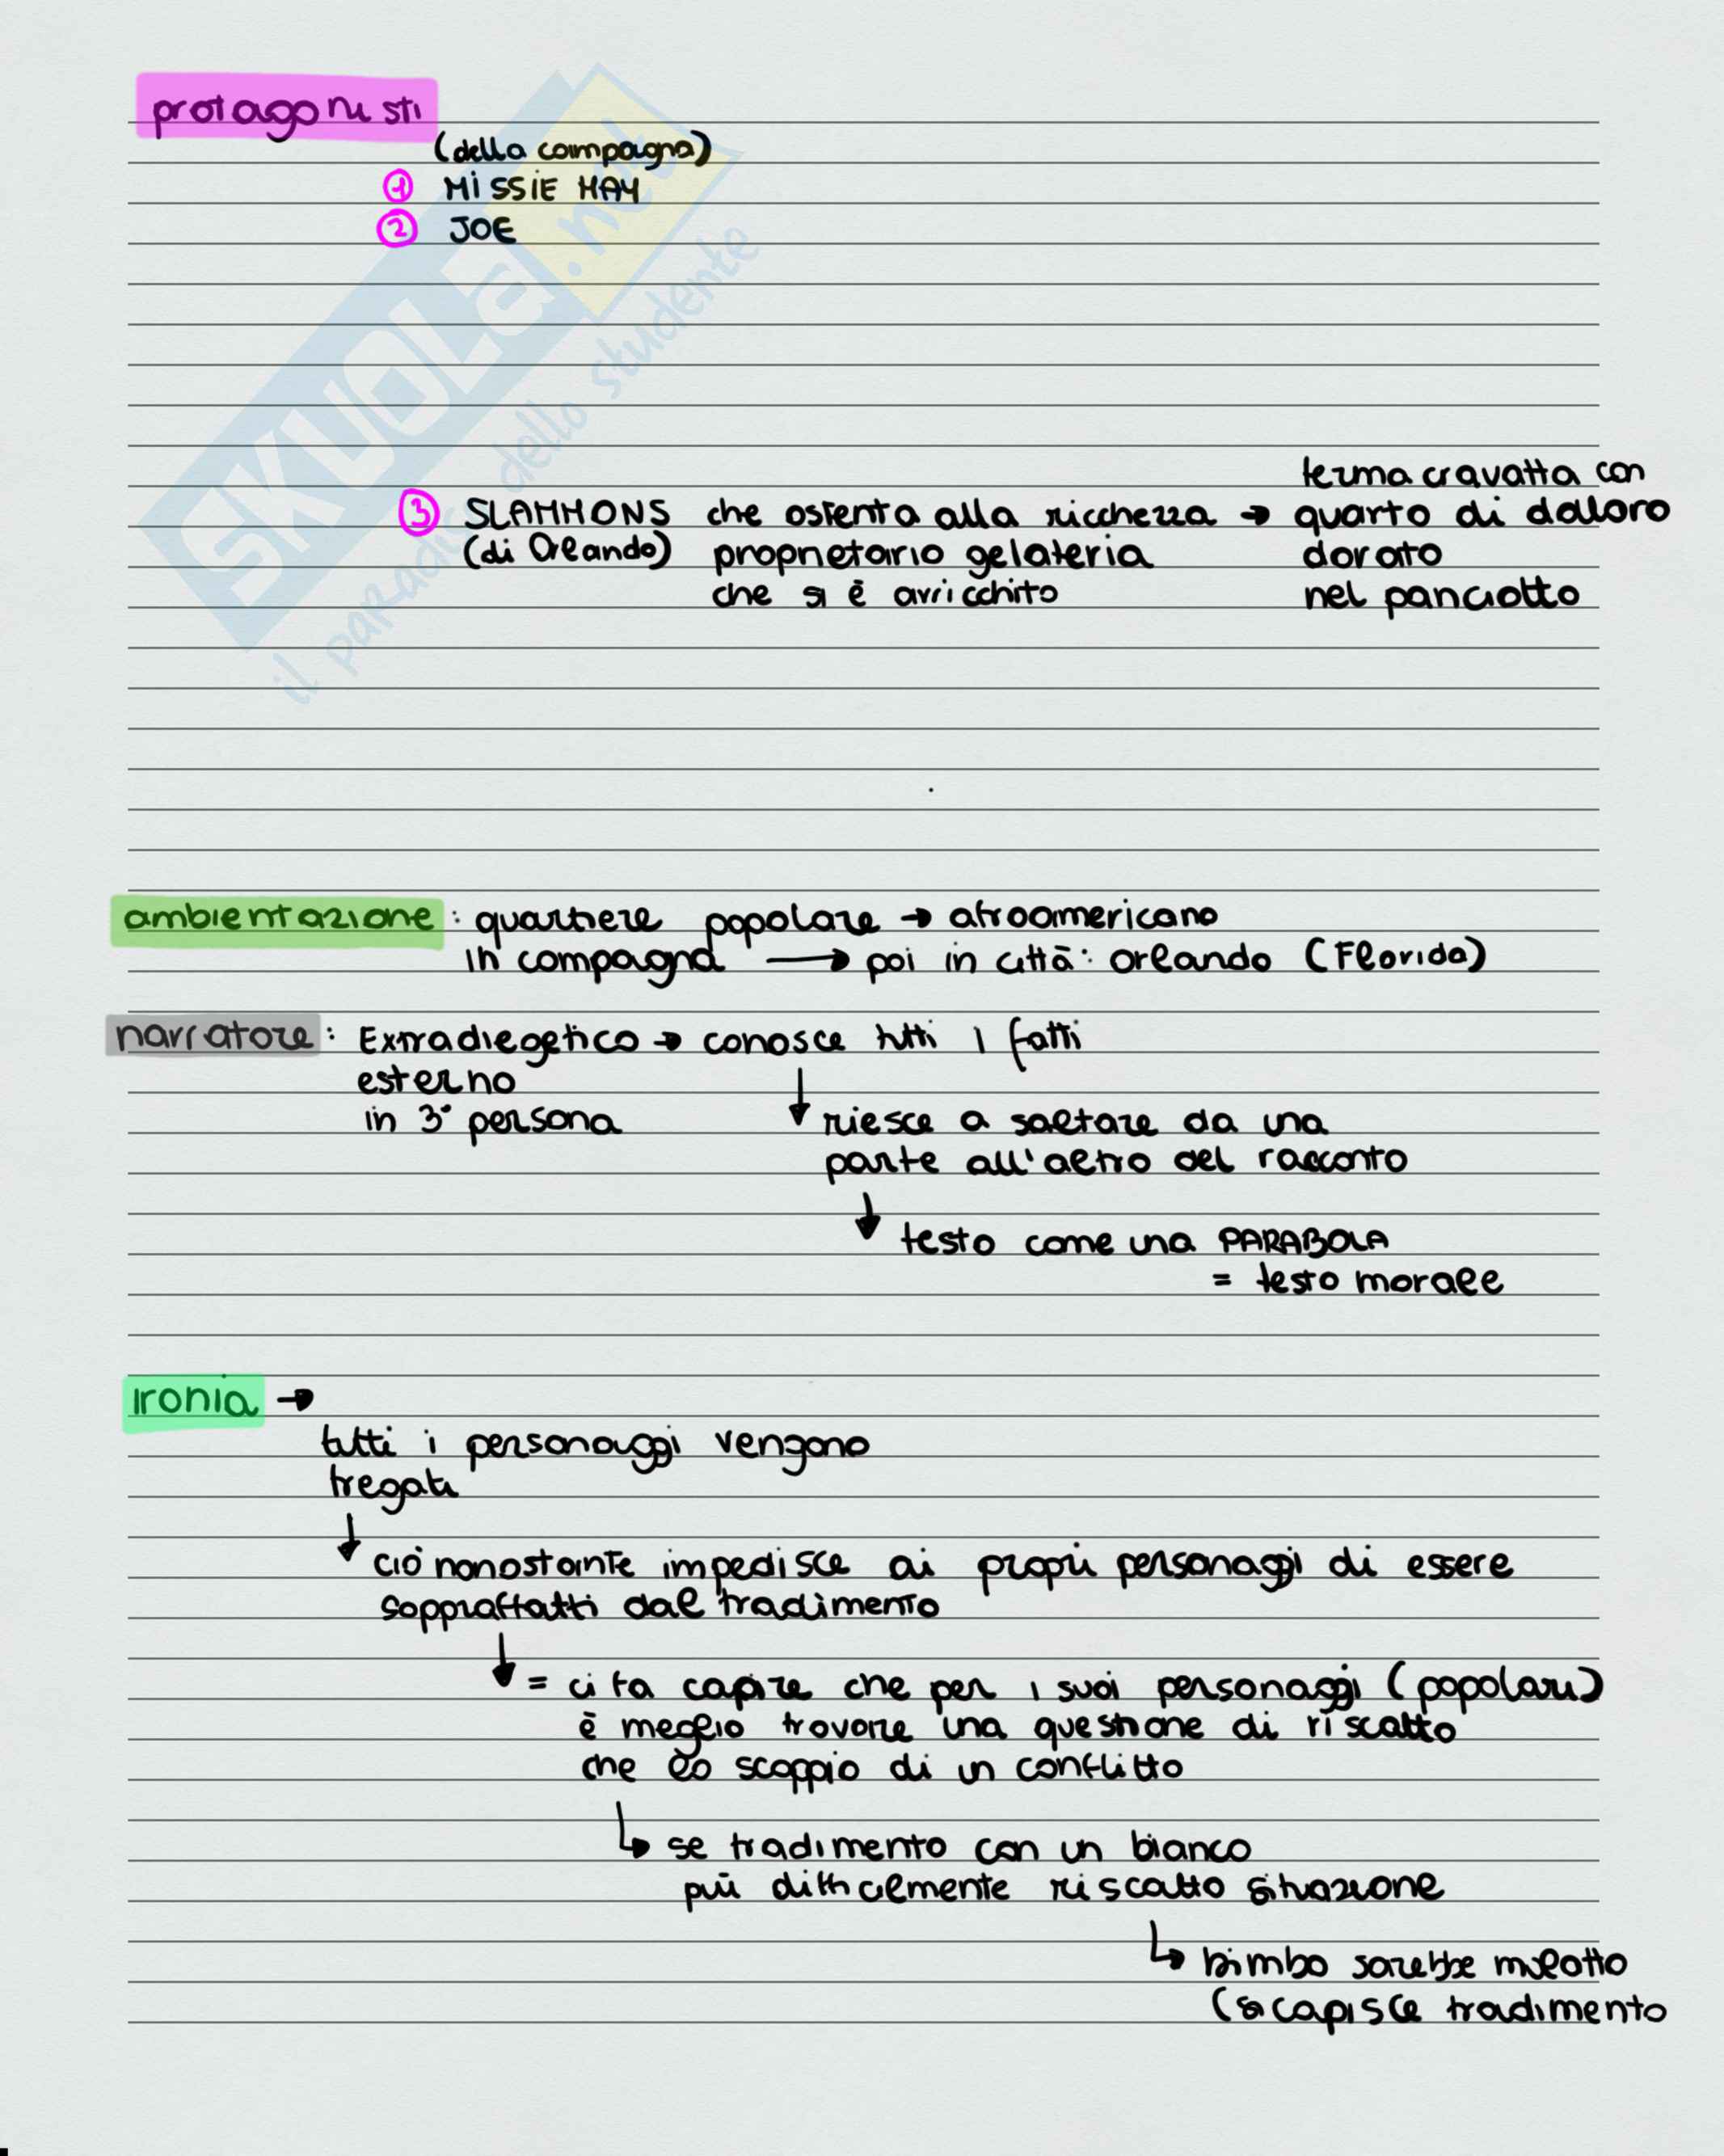 protagonisti
(della campagna)
① MISSIE MAY
② JOE
ferma cravatta con
③ SLAMMONS che ostenta alla ricchezza → quarto di dolloro
(di Orlando) proprietario gelateria dorato
che si è arricchito nel panciotto
ambientazione: quartiere popolare → afroamericano
in compagna → poi in città: orlando (Florida)
narratore: Extradiegetico → conosce tutti i fatti
esterno
in 3° persona ↓ riesce a saltare da una
parte all'altro del racconto
↓ testo come una PARABOLA
= testo morale
Ironia →
tutti i personaggi vengono
fregati
↓ ciò nonostante impedisce ai propri personaggi di essere
soppraffatti dal tradimento
↓ = ci fa capire che per i suoi personaggi (popolari)
è meglio trovare una questione di riscatto
che lo scoppio di un conflitto
↳ se tradimento con un bianco
più difficilmente riscatto situazione
↳ bimbo sarebbe mulatto
(si capisce tradimento
SKUOLa.net
il paradiso dello studente